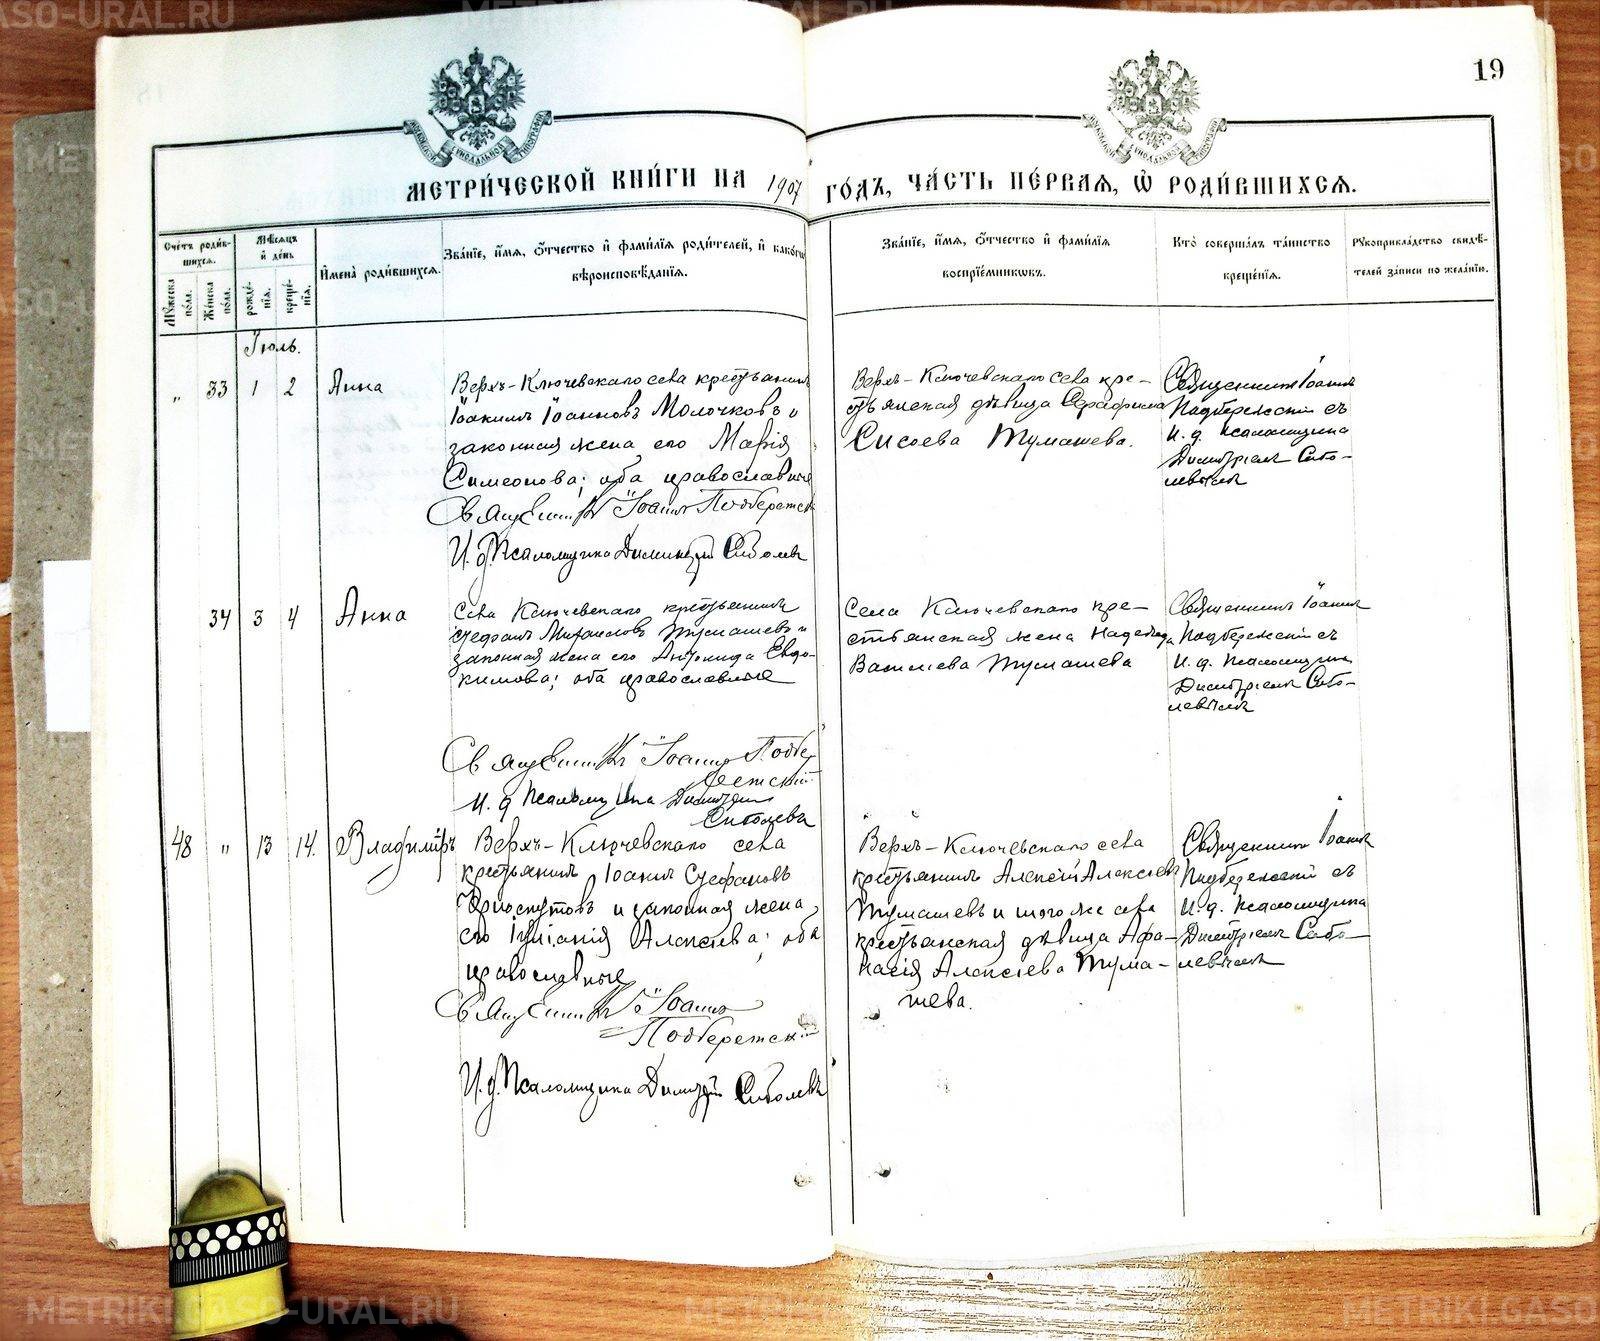 19
МЕТРИ́ЧЕСКОЙ КНИ́ГИ НА 1907 ГО́ДЪ, ЧА́СТЬ ПЕ́РВАЯ, Ѡ РОДИ́ВШИХСЯ.
Сче́тъ роди́в-
шихся.
Му́жеска по́ла.
Же́нска по́ла.
Мѣ́сяцъ
и҆ де́нь
рожде́-
нія.
креще́-
нія.
И҆мена̀ роди́вшихся.
Зва́ніе, и҆́мя, ѻ҆́тчество и҆ фами́лія роди́телей, и҆ како́гѡ
вѣроисповѣ́данія.
Зва́ніе, и҆́мя, ѻ҆́тчество и҆ фами́лія
воспріе́мникѡвъ.
Кто̀ соверша́лъ та́инство
креще́нія.
Рꙋкоприкла́дство свидѣ́-
телей за́писи по жела́нію.
Іюль.
„ 33 1 2 Анна
Верхъ-Ключевскаго села крестьянинъ
Іоакимъ Іоанновъ Молочковъ и
законная жена его Марія
Симеонова; оба православные
Священникъ Іоаннъ Подбережскій
И. д. Псаломщика Димитрій Соболевъ
Верхъ-Ключевскаго села кре-
стьянская дѣвица Серафима
Сисоева Тумашева.
Священникъ Іоаннъ
Подбережскій съ
И. д. псаломщика
Димитріемъ Собо-
левымъ
34 3 4 Анна
Села Ключевскаго крестьянинъ
Стефанъ Михаиловъ Тумашевъ и
законная жена его Антонида Евдо-
кимова; оба православные
Священникъ Іоаннъ Подбе-
режскій
И. д. Псаломщика Димитрій
Соболевъ
Села Ключевскаго кре-
стьянская жена Надежда
Васильева Тумашева
Священникъ Іоаннъ
Подбережскій съ
И. д. псаломщика
Димитріемъ Собо-
левымъ
48 „ 13 14. Владиміръ
Верхъ-Ключевскаго села
крестьянинъ Іоаннъ Стефановъ
и законная жена
его Іуліанія Алексѣева; оба
православные
Священникъ Іоаннъ
Подбережскій
И. д. Псаломщика Димитрій Соболевъ
Верхъ-Ключевскаго села
крестьянинъ Алексѣй Алексѣевъ
Тумашевъ и того же села
крестьянская дѣвица Афа-
насія Алексѣева Тума-
шева.
Священникъ Іоаннъ
Подбережскій съ
И. д. псаломщика
Димитріемъ Собо-
левымъ
METRIKI.GASO-URAL.RU